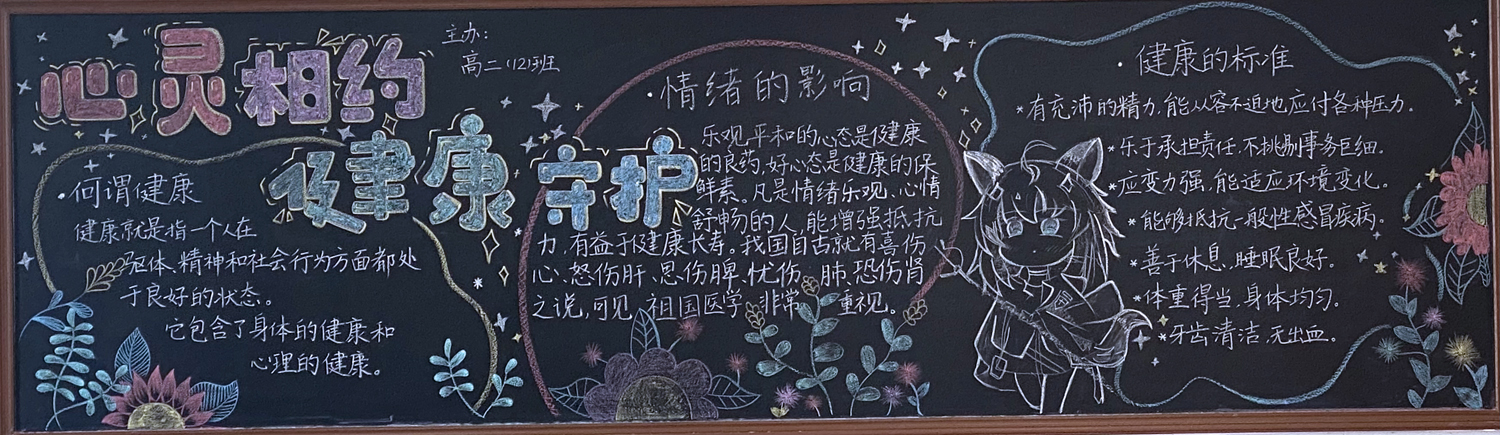 心灵相约
健康守护
主办：
高二（12）班
·何谓健康
健康就是指一个人在
躯体、精神和社会行为方面都处
于良好的状态。
它包含了身体的健康和
心理的健康。
·情绪的影响
乐观、平和的心态是健康
的良药，好心态是健康的保
鲜素。凡是情绪乐观、心情
舒畅的人，能增强抵抗
力，有益于健康长寿。我国自古就有喜伤
心、怒伤肝、思伤脾、忧伤肺、恐伤肾
之说，可见，祖国医学非常重视。
·健康的标准
*有充沛的精力，能从容不迫地应付各种压力。
*乐于承担责任，不挑剔事务巨细。
*应变力强，能适应环境变化。
*能够抵抗一般性感冒疾病。
*善于休息，睡眠良好。
*体重得当，身体均匀。
*牙齿清洁，无出血。